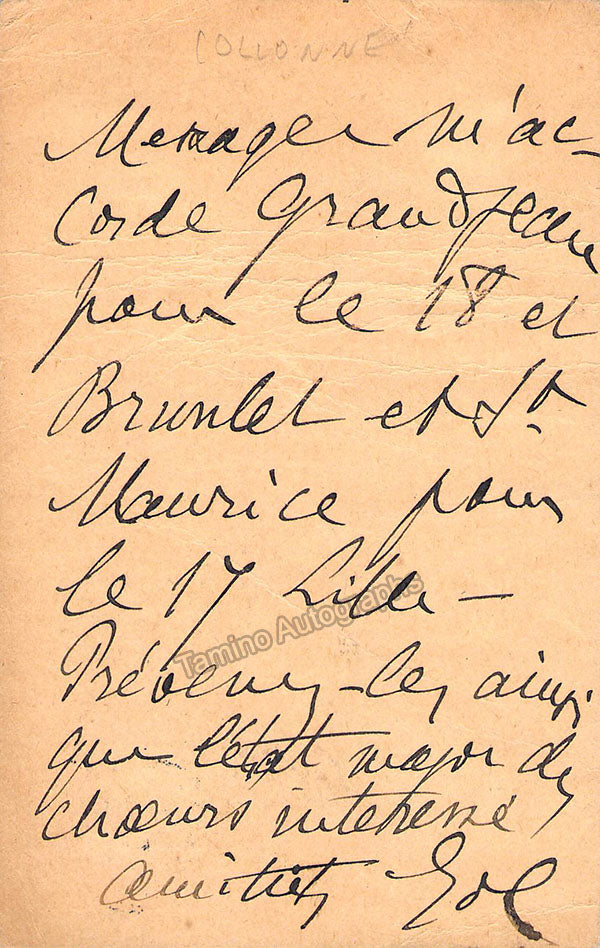 COLLONNE
Messager m'ac-
corde Grandjean
pour le 18 et
Brunlet et St
Maurice pour
le 17 Lille —
Tamino Autographs
Prévenez-les ainsi
que l'état major des
chœurs interessé
amitiés EdC